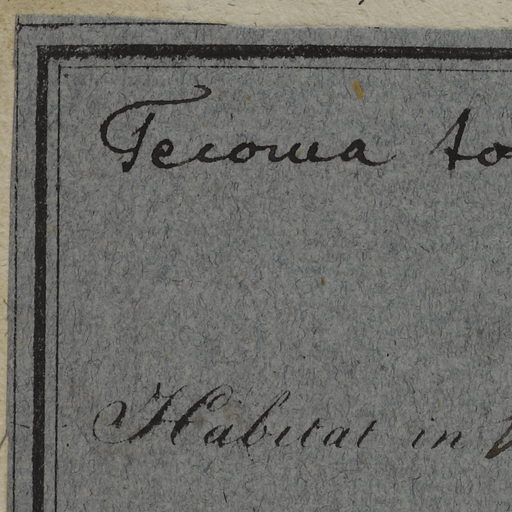 Tecoma to
Habitat in